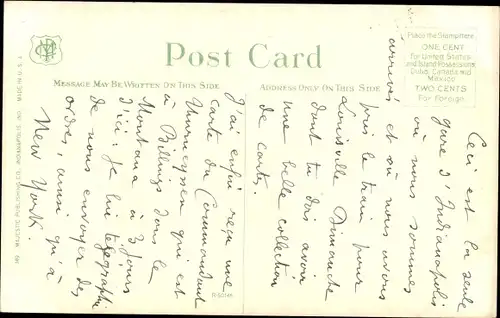 Post Card
MESSAGE MAY BE WRITTEN ON THIS SIDE
ADDRESS ONLY ON THIS SIDE
Place the Stamp Here
ONE CENT
for United States
and Island Possessions
Cuba, Canada and
Mexico
TWO CENTS
For Foreign
Ceci est la seule
gare d'Indianapolis
où nous sommes
arrivés et où nous avons
pris le train pour
Louisville Dimanche
dont tu dois avoir
une belle collection
de cartes.
J'ai enfin reçu une
carte du Commandant
qui est
à Billings dans le
Montana à 3 jours
d'ici. Je lui telegraphie
de nous envoyer des
ordres, ainsi qu'à
New York.
MADE IN U.S.A.